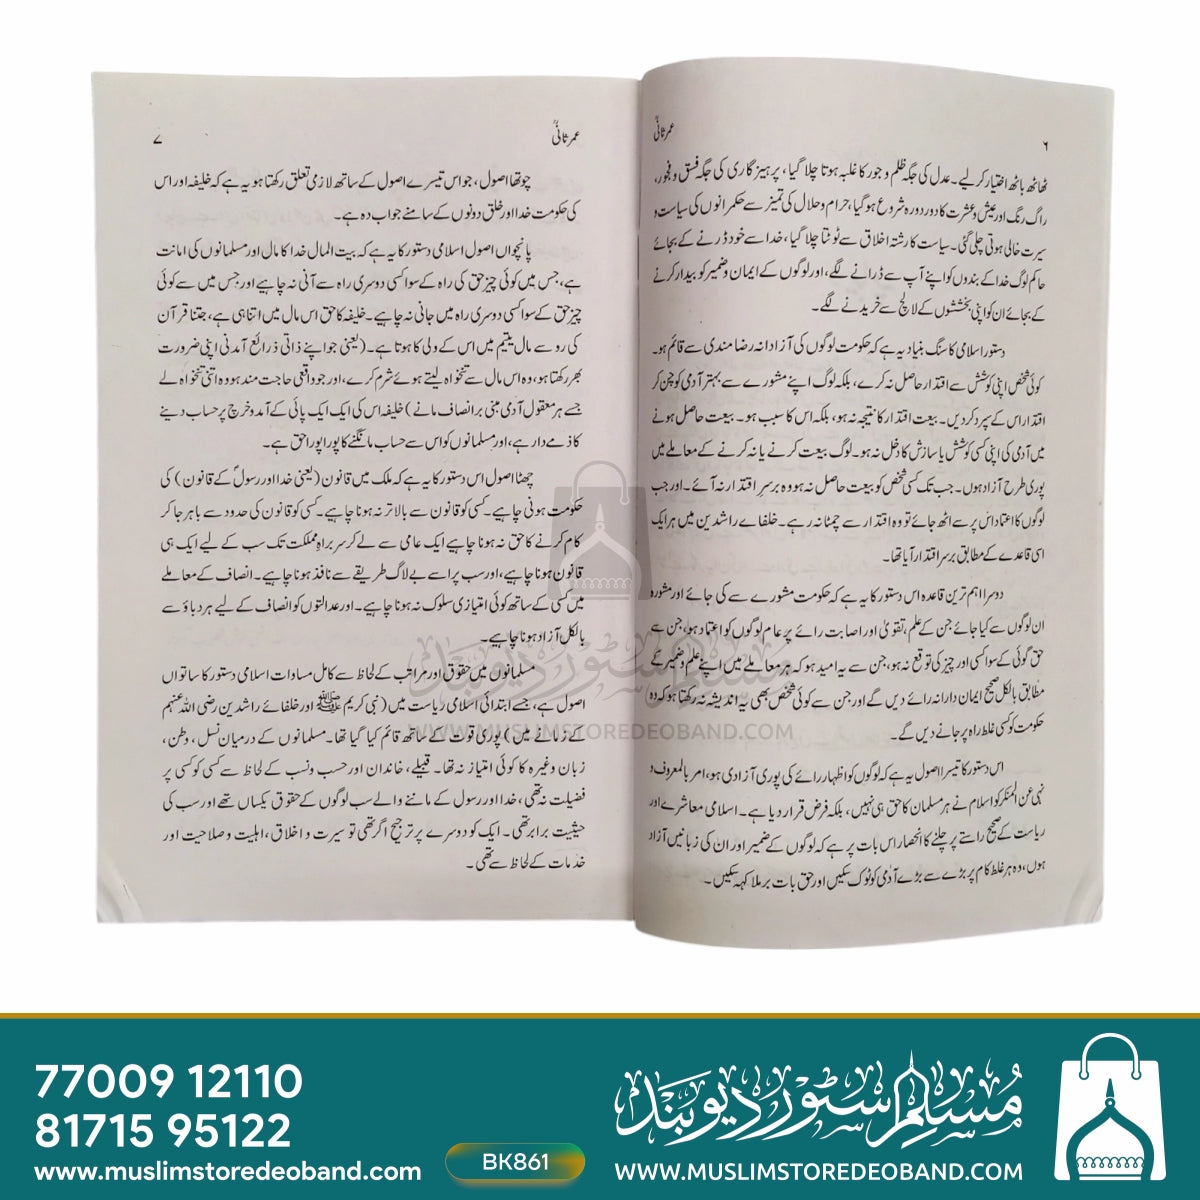 ۶
عمر ثانیؒ
ٹھاٹھ باٹھ اختیار کر لیے۔ عدل کی جگہ ظلم و جور کا غلبہ ہوتا چلا گیا، پرہیز گاری کی جگہ فسق و فجور،
راگ رنگ اور عیش و عشرت کا دور دورہ شروع ہو گیا، حرام و حلال کی تمیز سے حکمرانوں کی سیاست و
سیرت خالی ہوتی چلی گئی۔ سیاست کا رشتہ اخلاق سے ٹوٹتا چلا گیا، خدا سے خود ڈرنے کے بجائے
حاکم لوگ خدا کے بندوں کو اپنے آپ سے ڈرانے لگے، اور لوگوں کے ایمان و ضمیر کو بیدار کرنے
کے بجائے ان کو اپنی بخششوں کے لالچ سے خریدنے لگے۔
دستور اسلامی کا سنگ بنیاد یہ ہے کہ حکومت لوگوں کی آزادانہ رضا مندی سے قائم ہو۔
کوئی شخص اپنی کوشش سے اقتدار حاصل نہ کرے، بلکہ لوگ اپنے مشورے سے بہتر آدمی کو چن کر
اقتدار اس کے سپرد کر دیں۔ بیعت اقتدار کا نتیجہ نہ ہو، بلکہ اس کا سبب ہو۔ بیعت حاصل ہونے
میں آدمی کی اپنی کسی کوشش یا سازش کا دخل نہ ہو۔ لوگ بیعت کرنے یا نہ کرنے کے معاملے میں
پوری طرح آزاد ہوں۔ جب تک کسی شخص کو بیعت حاصل نہ ہو وہ برسر اقتدار نہ آئے۔ اور جب
لوگوں کا اعتماد اس پر سے اٹھ جائے تو وہ اقتدار سے چمٹا نہ رہے۔ خلفائے راشدین میں ہر ایک
اسی قاعدے کے مطابق برسر اقتدار آیا تھا۔
دوسرا اہم ترین قاعدہ اس دستور کا یہ ہے کہ حکومت مشورے سے کی جائے اور مشورہ
ان لوگوں سے کیا جائے جن کے علم، تقویٰ اور اصابت رائے پر عام لوگوں کو اعتماد ہو، جن سے
حق گوئی کے سوا کسی اور چیز کی توقع نہ ہو، جن سے یہ امید ہو کہ ہر معاملے میں اپنے علم و ضمیر کے
مطابق بالکل صحیح ایمان دارانہ رائے دیں گے اور جن سے کوئی شخص بھی یہ اندیشہ نہ رکھتا ہو کہ وہ
حکومت کو کسی غلط راہ پر جانے دیں گے۔
اس دستور کا تیسرا اصول یہ ہے کہ لوگوں کو اظہار رائے کی پوری آزادی ہو، امر بالمعروف و
نہی عن المنکر کو اسلام نے ہر مسلمان کا حق ہی نہیں، بلکہ فرض قرار دیا ہے۔ اسلامی معاشرے اور
ریاست کے صحیح راستے پر چلنے کا انحصار اس بات پر ہے کہ لوگوں کے ضمیر اور ان کی زبانیں آزاد
ہوں، وہ ہر غلط کام پر بڑے سے بڑے آدمی کو ٹوک سکیں اور حق بات برملا کہہ سکیں۔
عمر ثانیؒ
۷
چوتھا اصول، جو اس تیسرے اصول کے ساتھ لازمی تعلق رکھتا ہو یہ ہے کہ خلیفہ اور اس
کی حکومت خدا اور خلق دونوں کے سامنے جواب دہ ہے۔
پانچواں اصول اسلامی دستور کا یہ ہے کہ بیت المال خدا کا مال اور مسلمانوں کی امانت
ہے، جس میں کوئی چیز حق کی راہ کے سوا کسی دوسری راہ سے آنی نہ چاہیے اور جس میں سے کوئی
چیز حق کے سوا کسی دوسری راہ میں جانی نہ چاہیے۔ خلیفہ کا حق اس مال میں اتنا ہی ہے، جتنا قرآن
کی رو سے مال یتیم میں اس کے ولی کا ہوتا ہے۔ (یعنی جو اپنے ذاتی ذرائع آمدنی اپنی ضرورت
بھر رکھتا ہو، وہ اس مال سے تنخواہ لیتے ہوئے شرم کرے، اور جو واقعی حاجت مند ہو وہ اتنی تنخواہ لے
جسے ہر معقول آدمی مبنی بر انصاف مانے) خلیفہ اس کی ایک ایک پائی کے آمد و خرچ پر حساب دینے
کا ذمے دار ہے، اور مسلمانوں کو اس سے حساب مانگنے کا پورا پورا حق ہے۔
چھٹا اصول اس دستور کا یہ ہے کہ ملک میں قانون (یعنی خدا اور رسولؐ کے قانون) کی
حکومت ہونی چاہیے۔ کسی کو قانون سے بالاتر نہ ہونا چاہیے۔ کسی کو قانون کی حدود سے باہر جا کر
کام کرنے کا حق نہ ہونا چاہیے ایک عامی سے لے کر سربراہِ مملکت تک سب کے لیے ایک ہی
قانون ہونا چاہیے، اور سب پر اسے بے لاگ طریقے سے نافذ ہونا چاہیے۔ انصاف کے معاملے
میں کسی کے ساتھ کوئی امتیازی سلوک نہ ہونا چاہیے۔ اور عدالتوں کو انصاف کے لیے ہر دباؤ سے
بالکل آزاد ہونا چاہیے۔
مسلمانوں میں حقوق اور مراتب کے لحاظ سے کامل مساوات اسلامی دستور کا ساتواں
اصول ہے، جسے ابتدائی اسلامی ریاست میں (نبی کریم ﷺ اور خلفائے راشدین رضی اللہ عنہم
کے زمانے میں) پوری قوت کے ساتھ قائم کیا گیا تھا۔ مسلمانوں کے درمیان نسل، وطن،
زبان وغیرہ کا کوئی امتیاز نہ تھا۔ قبیلے، خاندان اور حسب و نسب کے لحاظ سے کسی کو کسی پر
فضیلت نہ تھی، خدا اور رسول کے ماننے والے سب لوگوں کے حقوق یکساں تھے اور سب کی
حیثیت برابر تھی۔ ایک کو دوسرے پر ترجیح اگر تھی تو سیرت و اخلاق، اہلیت و صلاحیت اور
خدمات کے لحاظ سے تھی۔
مسلم سٹور دیوبند
WWW.MUSLIMSTOREDEOBAND.COM
77009 12110
81715 95122
www.muslimstoredeoband.com
BK861
مسلم سٹور دیوبند
WWW.MUSLIMSTOREDEOBAND.COM